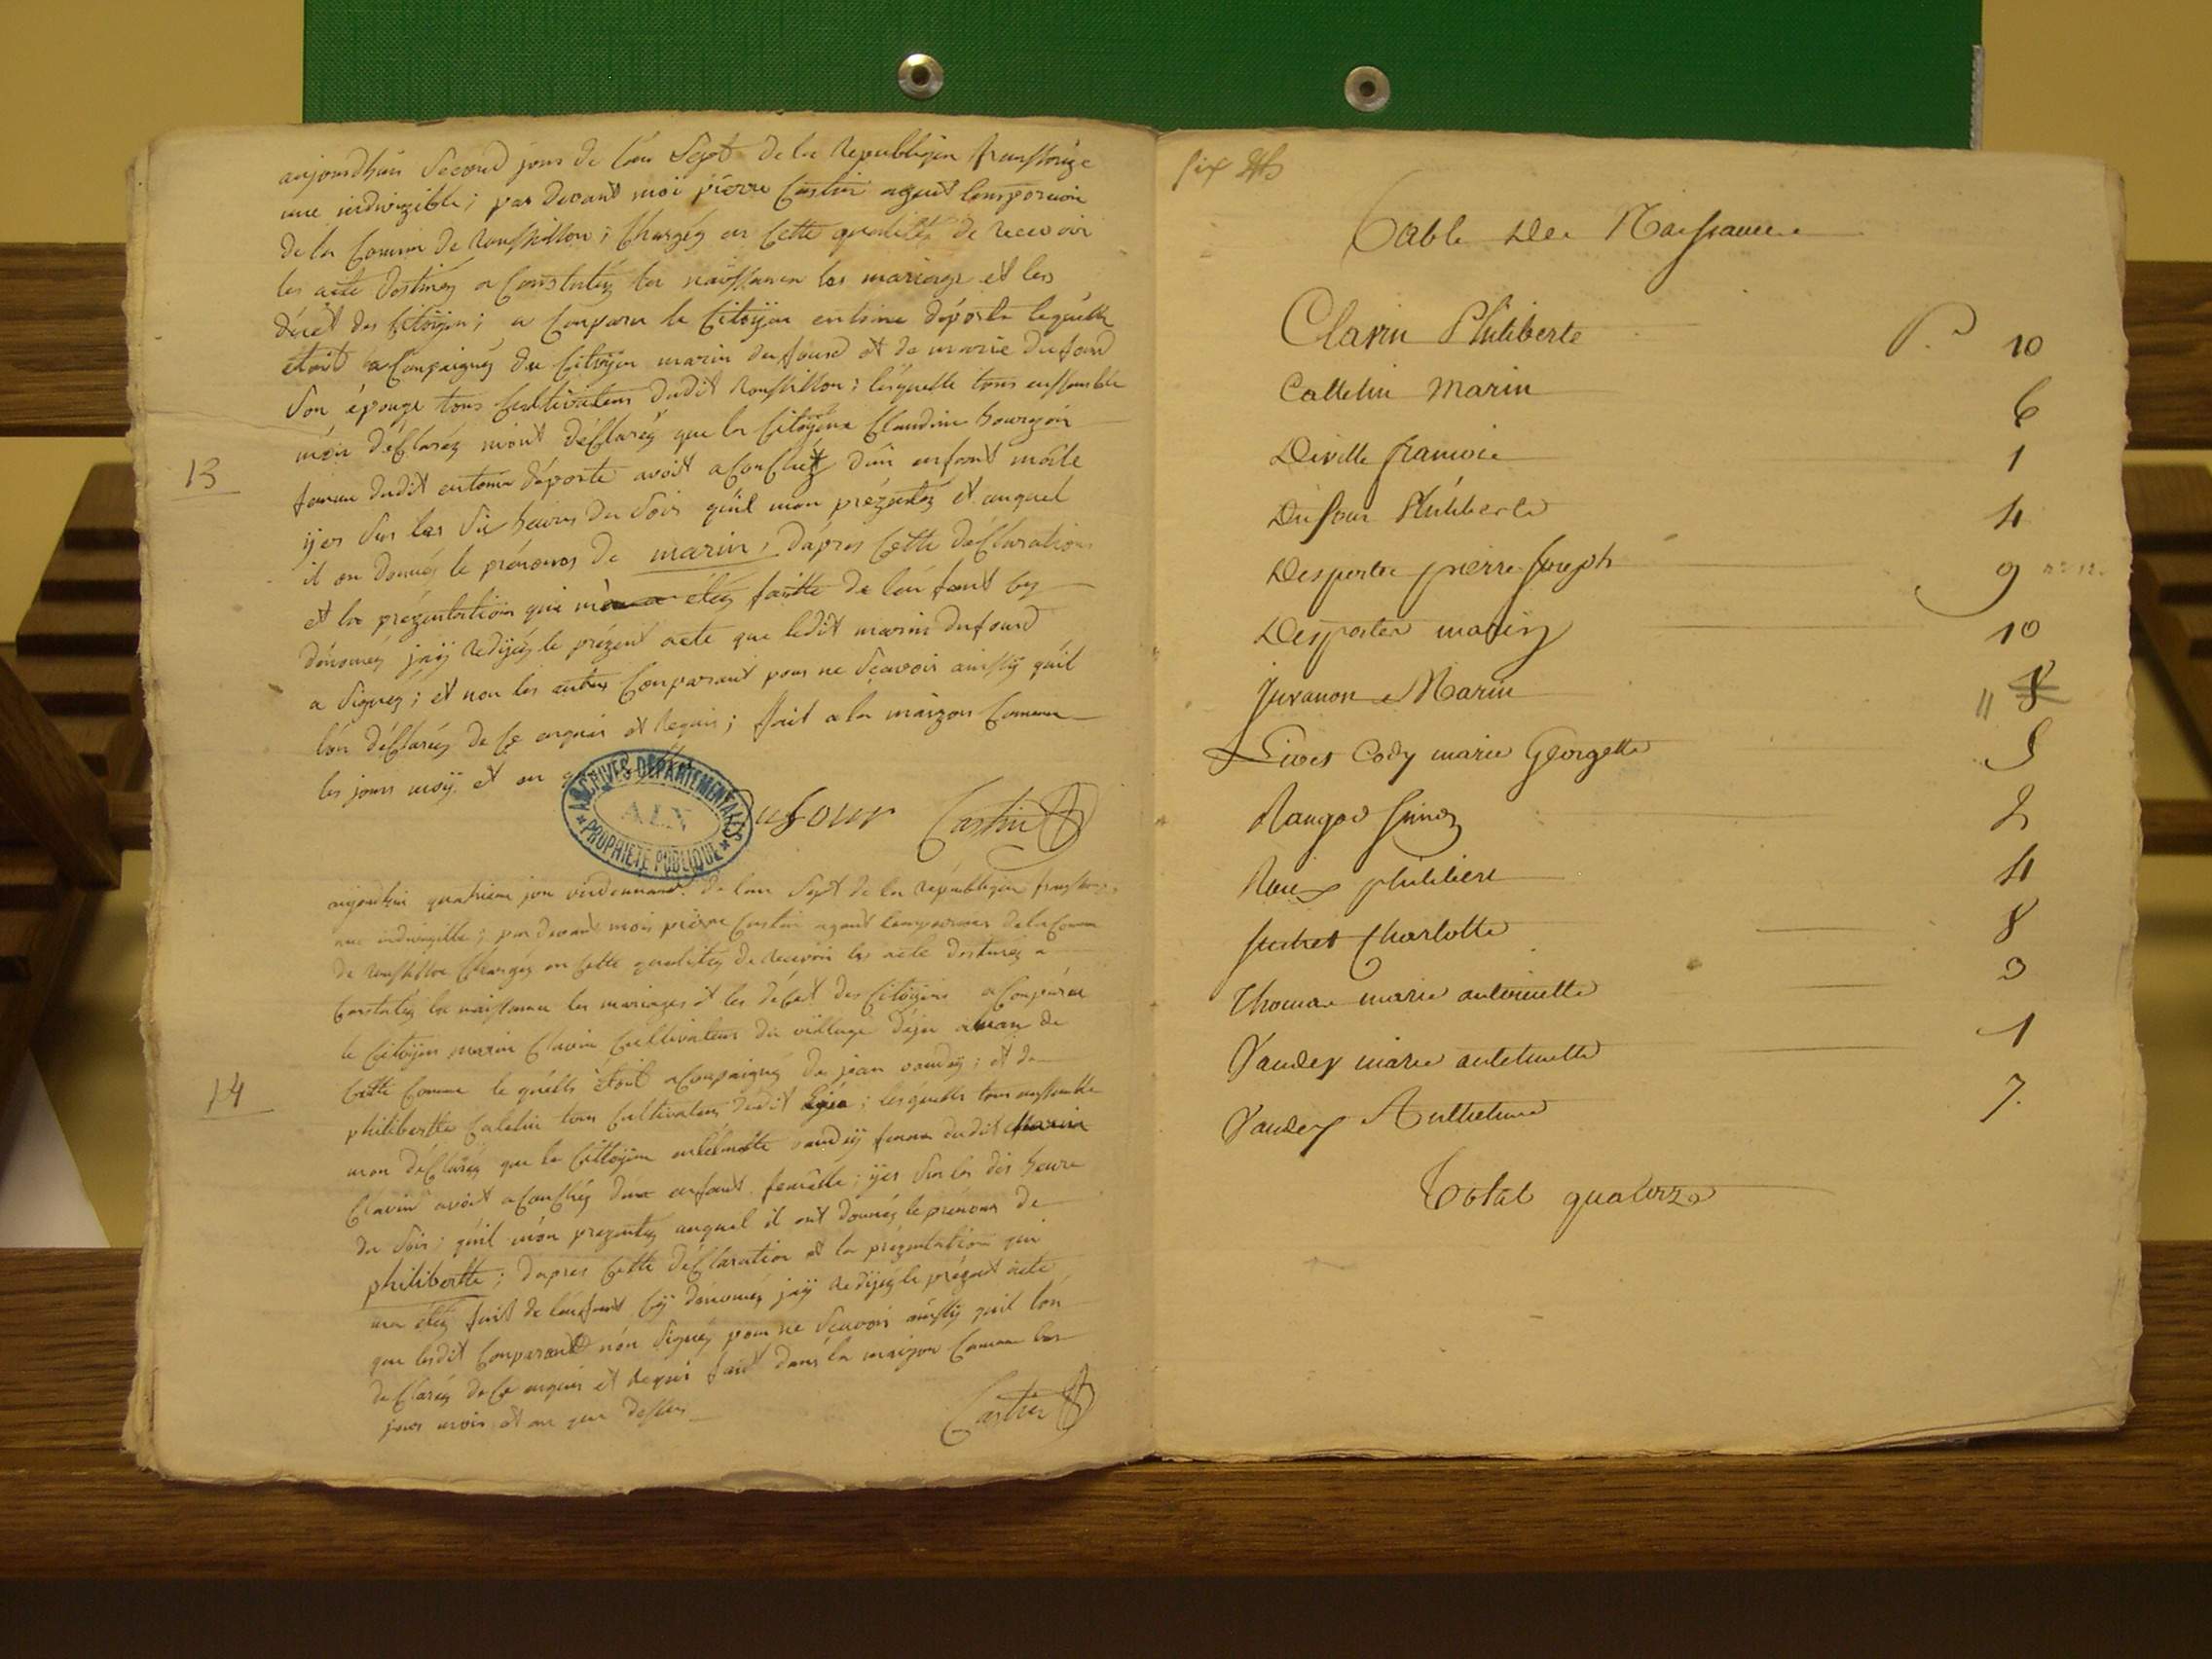 aujourdhüi second jour de lan Sept de la Republiqu franssoize
une indivizible; par devant moi pierre Castin agent
de la Comune de Rousskillon; Chargéz en Cette qualitéz de recevoir
les acte destinéz a Constatéz les naissance les mariage et les
décèt des Citoÿen; a Comparu le Citoÿen entoine déporte lequélle
étoit aCompaignéz du Citoÿen marin dufourd et de marie dufourd
son épouze tous Cultivateur dudit Rousskillon; lesquelle tous enssemble
món déClaréz que la Citoÿene Claudine bourgoin
13
femme dudit entoine déporte avoit aCouChéz dun enfant mâle
ÿer sur les heures du soir quil mon prézentéz et auquel
il on donnéz le prénoms de marin, dapres Cette déClaration
et la prezentation qui étéz faitte de lenfant Cy
dénoméz jaÿ Redijéz le prézent acte que ledit marin dufourd
a Signéz; et non les autres Comparant pour ne Scavoir ainssÿ quil
lón déClaréz de Ce enquis et Requis; fait a la maizon Comune
les jours moÿ et an
ARCHIVES DÉPARTEMENTALES
AIN
PROPRIÉTÉ PUBLIQUE
Dufour Castin
aujourdhui quatrieme jour de lan Sept de la république
une indivizille; par devant moi pièrre Castin agent de la Comune
de Chargéz en Cette qualitéz de Recevoir les acte destinéz a
Constatéz la naissance les mariages et les décet des Citoÿens a Comparu
le Citoÿen marin Clavin Cultivateur du village
Cette Comune le quélle étoit aCompaignéz de jean vandeÿ; et de
14
philibertte Catelin tous Cultivateur dudit; lesquelle tous enssemble
mon déClaréz que la Cittoÿene vandeÿ femme dudit Marin
Clavin avoit aCouChéz dun enfant femélle; ÿer sur les dix heure
du Soir; quil món prezentéz auquel il ont donnéz le prénoms de
philibertte; dapres Cette déClaration et la prézentation qui
ma étéz fait de lenfant Cÿ dénoméz jaÿ Redijéz le prézent acte
que lesdit Comparant nón Signéz pour ne Scavoir ainssÿ quil lón
déClaréz de Ce enquis et Requis fait dans la maizon Comune les
jours mois et an que dessus
Castin
six
Table Des Naissances
Clavin Philiberte P. 10
Cattelin Marin 6
Deville francoise 1
Dufour Philiberte 4
Desporter pierre Joseph 9 n° 12.
Desporter marin 10
Juvanon Marin 11 8
Livet Cody marie Georgette 5
Rangod 2
Roux philibert 4
Suchet Charlotte 8
Thomas marie antoinette 3
Vandey marie antoinette 1
Vandey Anthelme 7.
Total quatorze